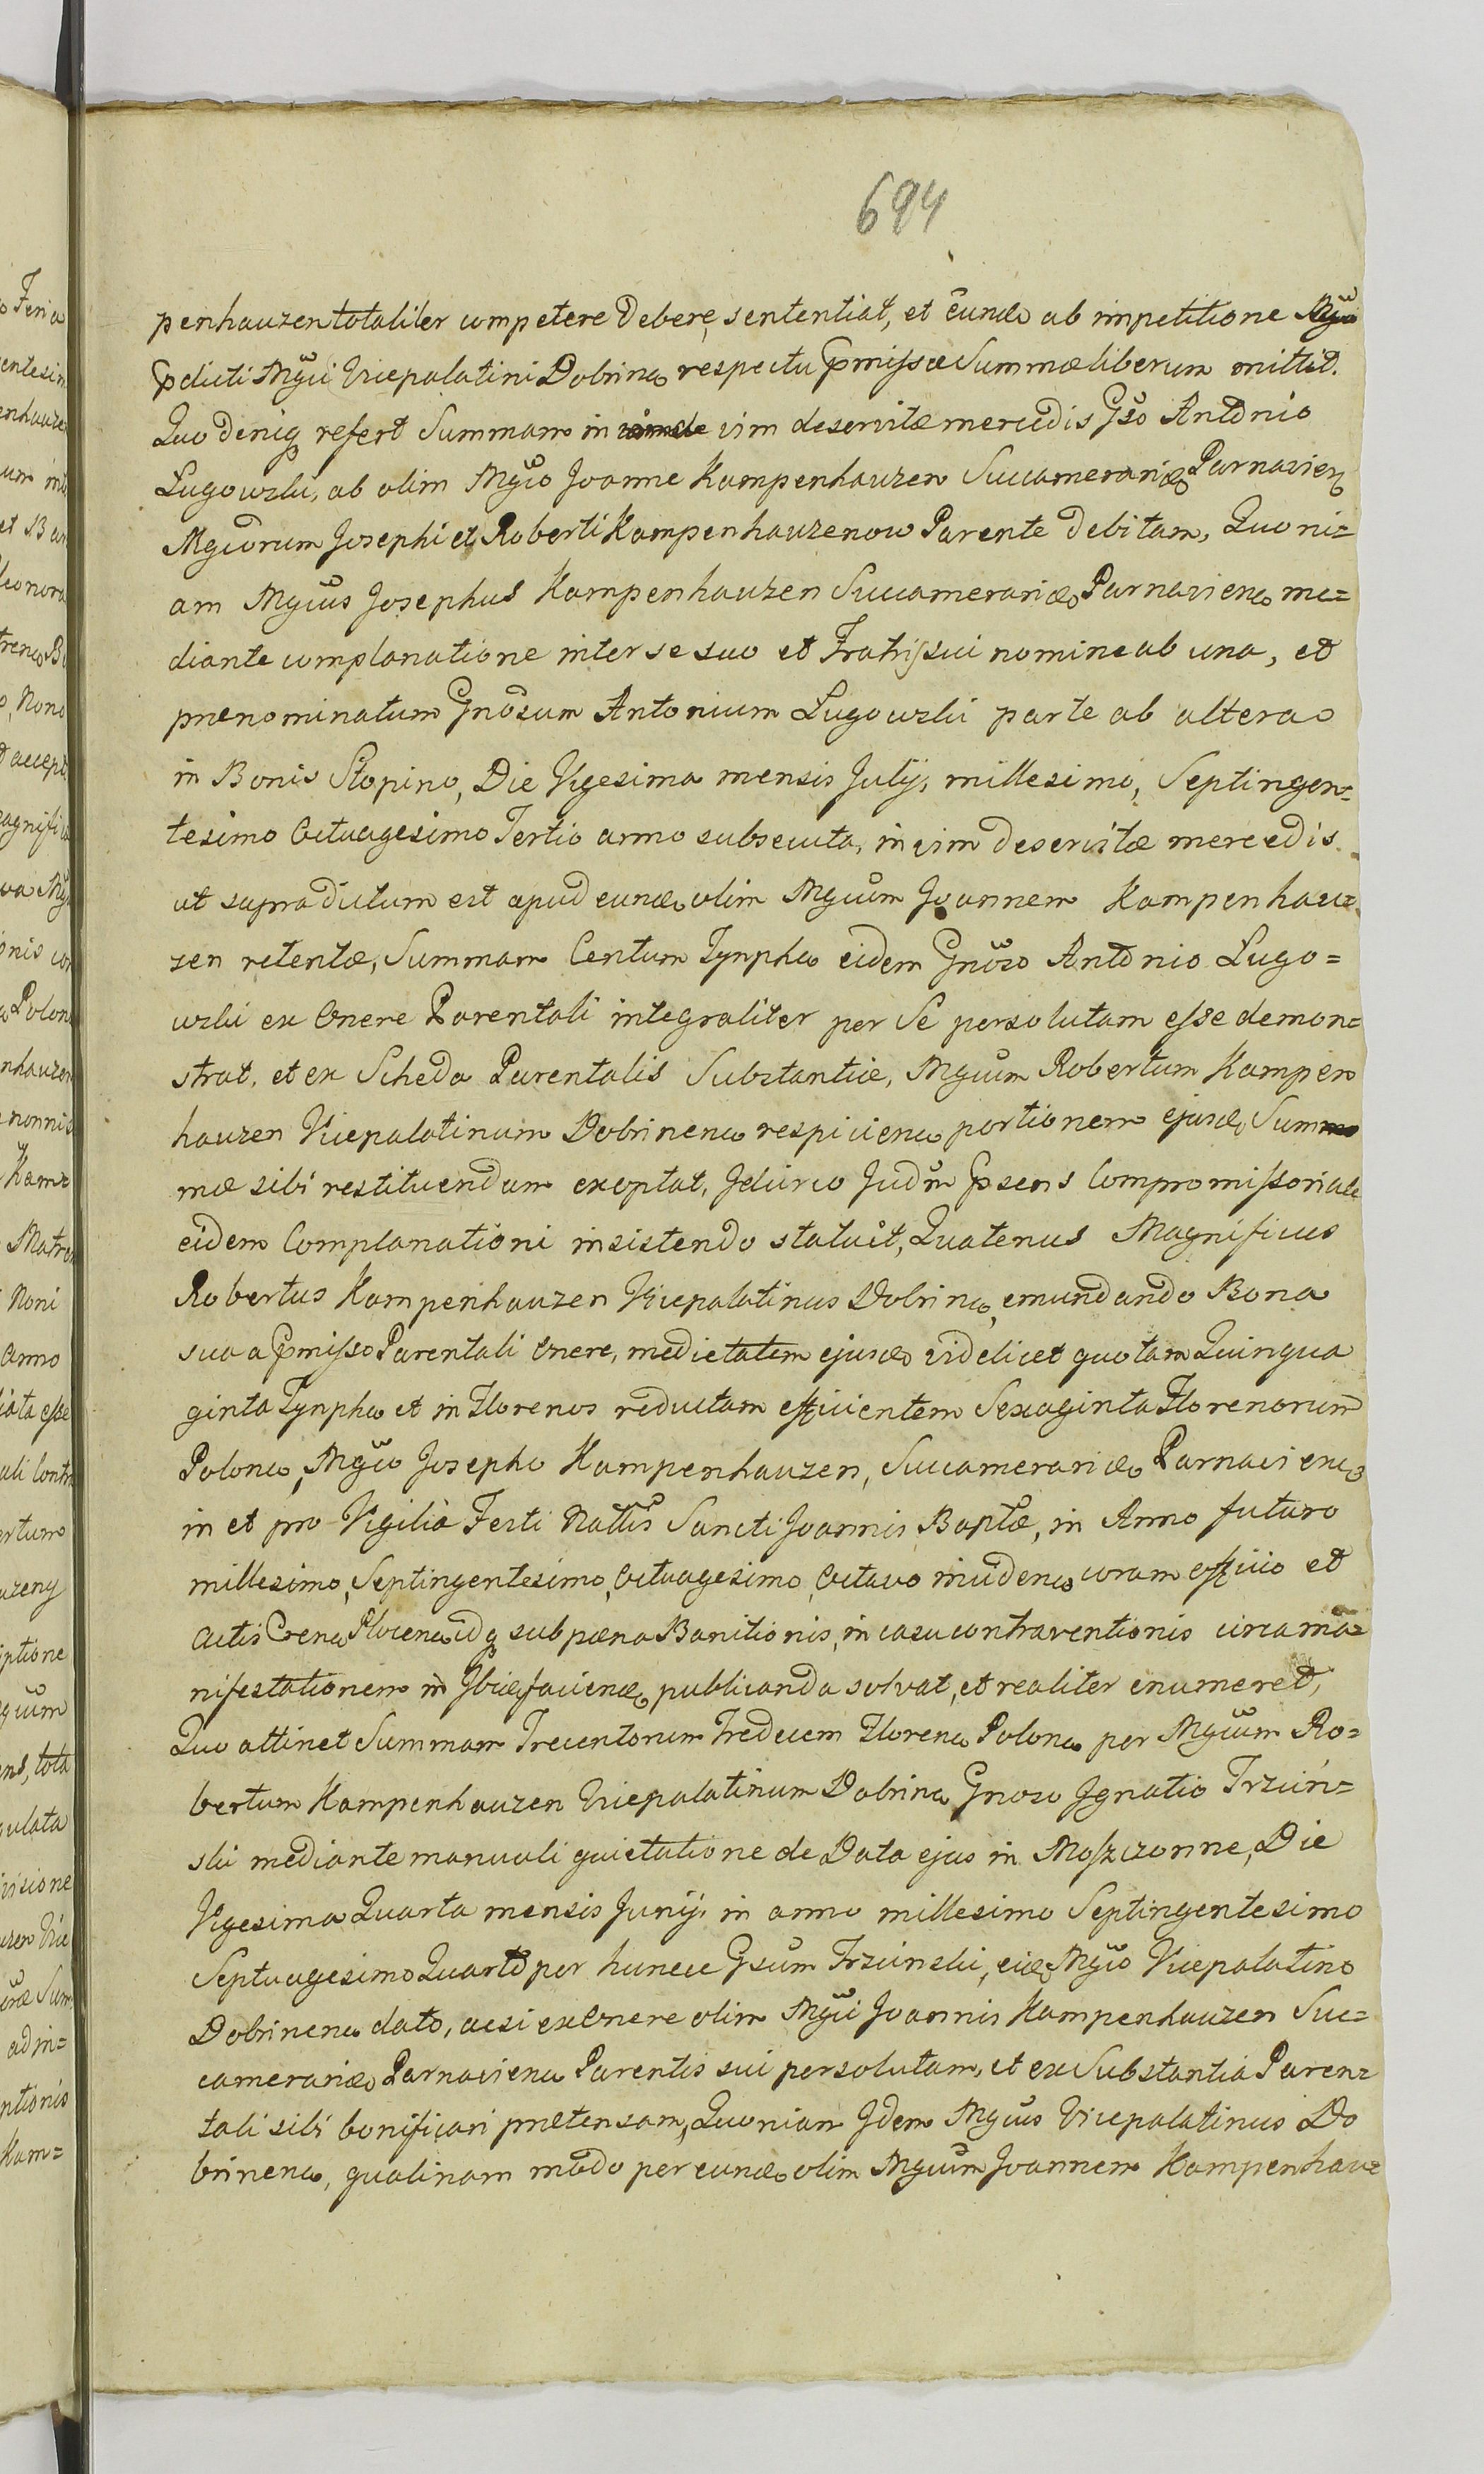 694
penhauzen totaliter competere debere, sententiat, et eund. ab impetitione
Pdicti Mgci Vicepalatini Dobrinen. respectu Pmissae Summae liberum mittit.
Quo deniq. refert Summam in vim deservitae mercedis Gso Antonio
Lugowski, ab olim Mgco Joanne Kampenhauzen Succamerarid. Parnavien.
Mgcorum Josephi et Roberti Kampenhauzenow Parente debitam, Quoni=
am Mgcus Josephus Kampenhauzen Succamerarid. Parnavien. me=
diante complanatione inter se suo et Fratris sui nomine ab una, et
praenominatum Gnosum Antonium Lugowski parte ab altera
in Bonis Stopino, Die Vigesima mensis Julij, millesimo, Septingen=
tesimo Octuagesimo Tertio anno subsecuta, in vim deservitae mercedis
ut supradictum est apud eund. olim Mgcum Joannem Kampenhau=
zen retentae, Summam Centum Tympho. eidem Gnoso Antonio Lugo=
wski ex Onere Parentali integraliter per Se persolutam esse demon=
strat, et ex Scheda Parentalis Substantiae, Mgcum Robertum Kampen
hauzen Vicepalatinum Dobrinen. respicien. portionem ejusd. Sum
mae sibi restituendam exoptat, Idcirco Judm Psens Compromissoriale
eidem Complanationi insistendo statuit, Quatenus Magnificus
Robertus Kampenhauzen Vicepalatinus Dobrinen. emundando Bona
sua a Pmisso Parentali Onere, medietatem ejusd. videlicet quotam Quinqua
ginta Tympho. et in Florenos reductam efficientem Sexaginta Florenorum
Polon. Mgco Josepho Kampenhauzen, Succamerarid. Parnavien.
in et pro Vigilia Festi Nattis Sancti Joannis Baptae, in Anno futuro
millesimo, Septingentesimo, Octuagesimo, Octavo inciden. coram officio et
Actis Cren. Plocen. idq. sub paena Banitionis, in casu contraventionis circa ma=
nifestationem in facien. publicanda solvat, et realiter enumeret,
Quo attinet Summam Trecentorum Tredecem Floren. Polon. per Mgcum Ro=
bertum Kampenhauzen Vicepalatinum Dobrinen. Gnoso Ignatio Trzciń=
ski mediante manuali quietatione de Data ejus in Moszczonne, Die
Vigesima Quarta mensis Junij, in anno millesimo Septingentesimo
Septuagesimo Quarto per hunce Gsum Trzcinski, eid. Mgco Vicepalatino
Dobrinen. dato, acsi ex Onere olim Mgci Joannis Kampenhauzen Suc=
camerarid. Parnavien. Parentis sui persolutam, et ex Substantia Paren=
tali sibi bonificari praetensam, Quoniam Idem Mgcus Vicepalatinus Do
brinen., qualinam modo per eund. olim Mgcum Joannem Kampenhau=